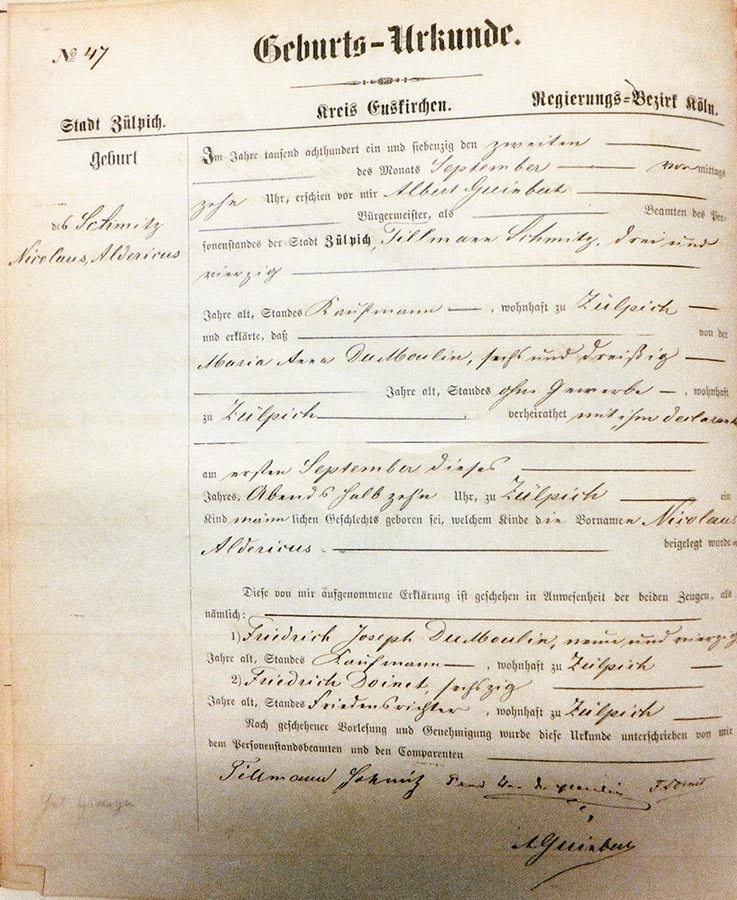 № 47
Geburts-Urkunde.
Stadt Zülpich.
Kreis Euskirchen.
Regierungs-Bezirk Köln.
Geburt
des Schmitz
Nicolaus, Aldericus
Im Jahre tausend achthundert ein und siebenzig den zweiten
des Monats September vormittags
zehn Uhr, erschien vor mir Albert Guinbert
Bürgermeister, als Beamten des Per-
sonenstandes der Stadt Zülpich, Tillmann Schmitz, drei und
vierzig
Jahre alt, Standes Kaufmann, wohnhaft zu Zülpich
und erklärte, daß von der
Maria Anna DuMoulin, sechs und dreißig
Jahre alt, Standes ohne Gewerbe, wohnhaft
zu Zülpich verheirathet mit ihm Declarant
am ersten September dieses
Jahres, Abends halb zehn Uhr, zu Zülpich ein
Kind männlichen Geschlechts geboren sei, welchem Kinde die Vornamen Nicolaus
Aldericus beigelegt wurde
Diese von mir aufgenommene Erklärung ist geschehen in Anwesenheit der beiden Zeugen, als
nämlich:
1) Friedrich Joseph DuMoulin, neun und vierzig
Jahre alt, Standes Kaufmann, wohnhaft zu Zülpich
2) Friedrich Doinet, sechszig
Jahre alt, Standes Friedensrichter, wohnhaft zu Zülpich
Nach geschehener Vorlesung und Genehmigung wurde diese Urkunde unterschrieben von mir
dem Personenstandsbeamten und den Comparenten
Tillmann Schmitz
AGuinbert